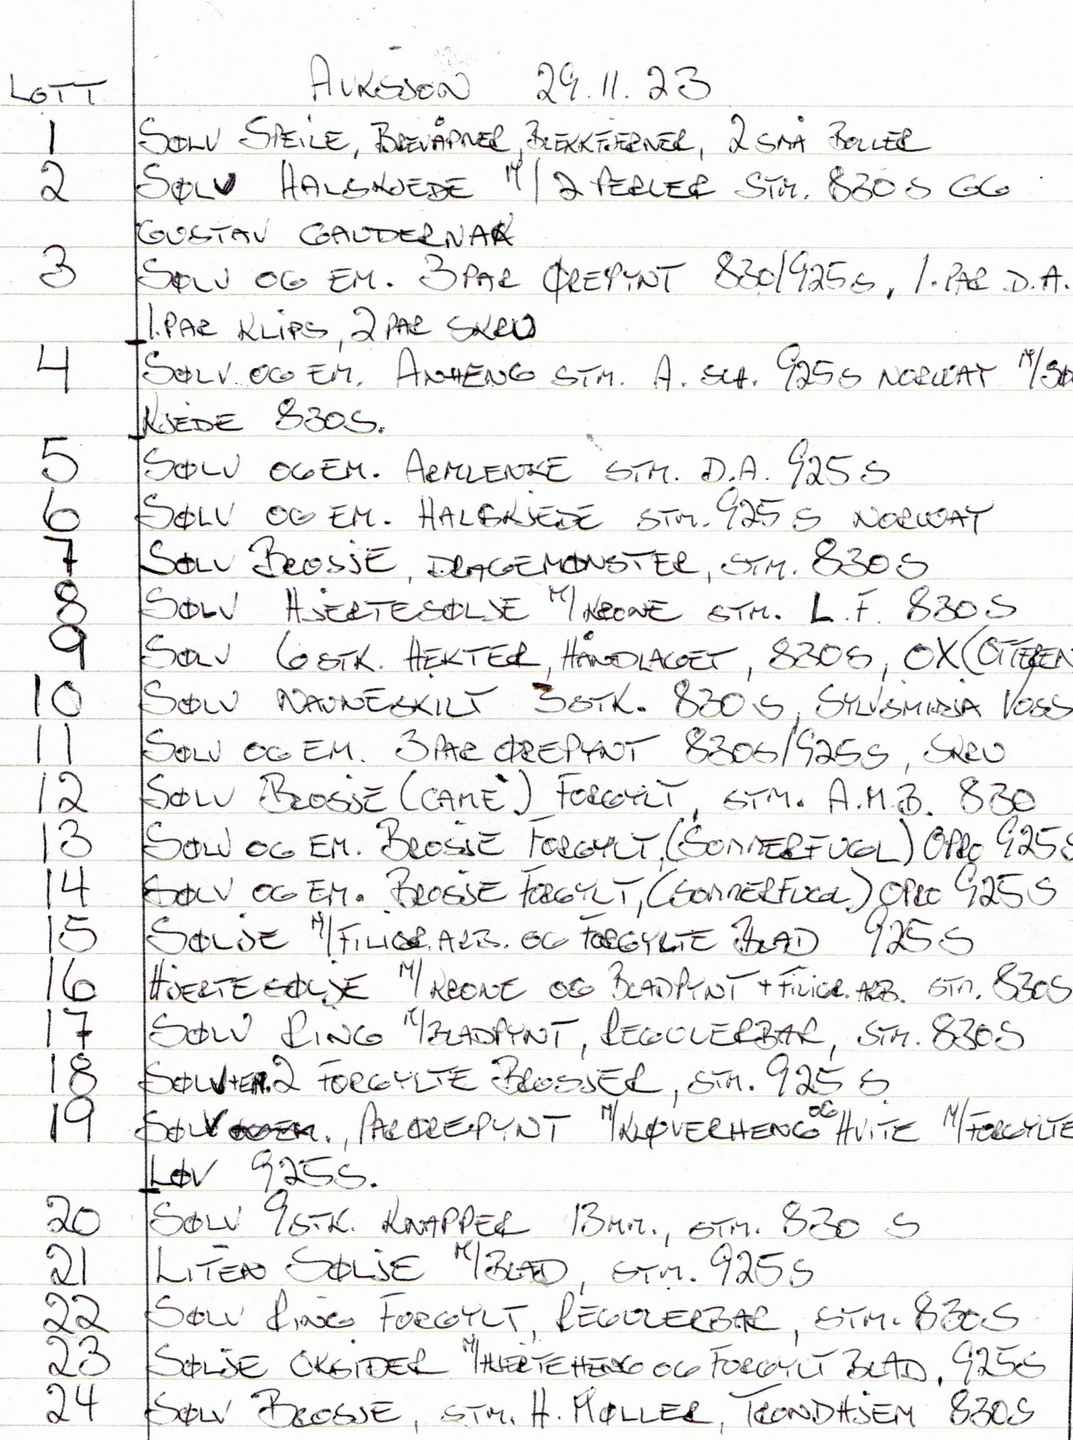 LOTT AUKSJON 29.11.23
1 SØLV SPEILE, BREVÅPNER, BLEKKFJERNER, 2 SMÅ BOLLER
2 SØLV HALSKJEDE M/2 PERLER STM. 830 S GG
GUSTAV GAUDERNAK
3 SØLV OG EM. 3 PAR ØREPYNT 830/925 S, 1.PAR D.A.
1.PAR KLIPS, 2 PAR SKRU
4 SØLV. OG EM. ANHENG STM. A. SCH. 925 S NORWAY M/SØ
KJEDE 830S.
5 SØLV OG EM. ARMLENKE STM. D.A. 925 S
6 SØLV OG EM. HALSKJEDE STM. 925 S NORWAY
7 SØLV BROSJE, DRAGEMØNSTER, STM. 830 S
8 SØLV HJERTESØLJE M/KRONE STM. L.F. 830 S
9 SØLV 6 STK. HEKTER, HÅNDLAGET, 830S, OX(OTTEREN
10 SØLV NAVNESKILT 3 STK. 830 S, SYLVSMIDJA VOSS
11 SØLV OG EM. 3 PAR ØREPYNT 830S/925S, SKRU
12 SØLV BROSJE (CAMÈ) FORGYLT, STM. A.M.B. 830
13 SØLV OG EM. BROSJE FORGYLT, (SOMMERFUGL) OPRO 925S
14 SØLV OG EM. BROSJE FORGYLT, (SOMMERFUGL) OPRO 925 S
15 SØLJE M/FILIGR. ARB. OG FORGYLTE BLAD 925 S
16 HJERTESØLJE M/KRONE OG BLADPYNT + FILIGR. ARB. STM. 830S
17 SØLV RING M/BLADPYNT, REGULERBAR, STM. 830S
18 SØLV+EM. 2 FORGYLTE BROSJER, STM. 925 S
19 SØLV., PAR ØREPYNT M/KLØVERHENG OG HVITE M/FORGYLTE
LØV 925S.
20 SØLV 9 STK. KNAPPER 13 MM., STM. 830 S
21 LITEN SØLJE M/BLAD, STM. 925 S
22 SØLV RING FORGYLT, REGULERBAR, STM. 830S
23 SØLJE OKSIDER M/HJERTEHENG OG FORGYLT BLAD, 925S
24 SØLV BROSJE, STM. H. MØLLER, TRONDHJEM 830S